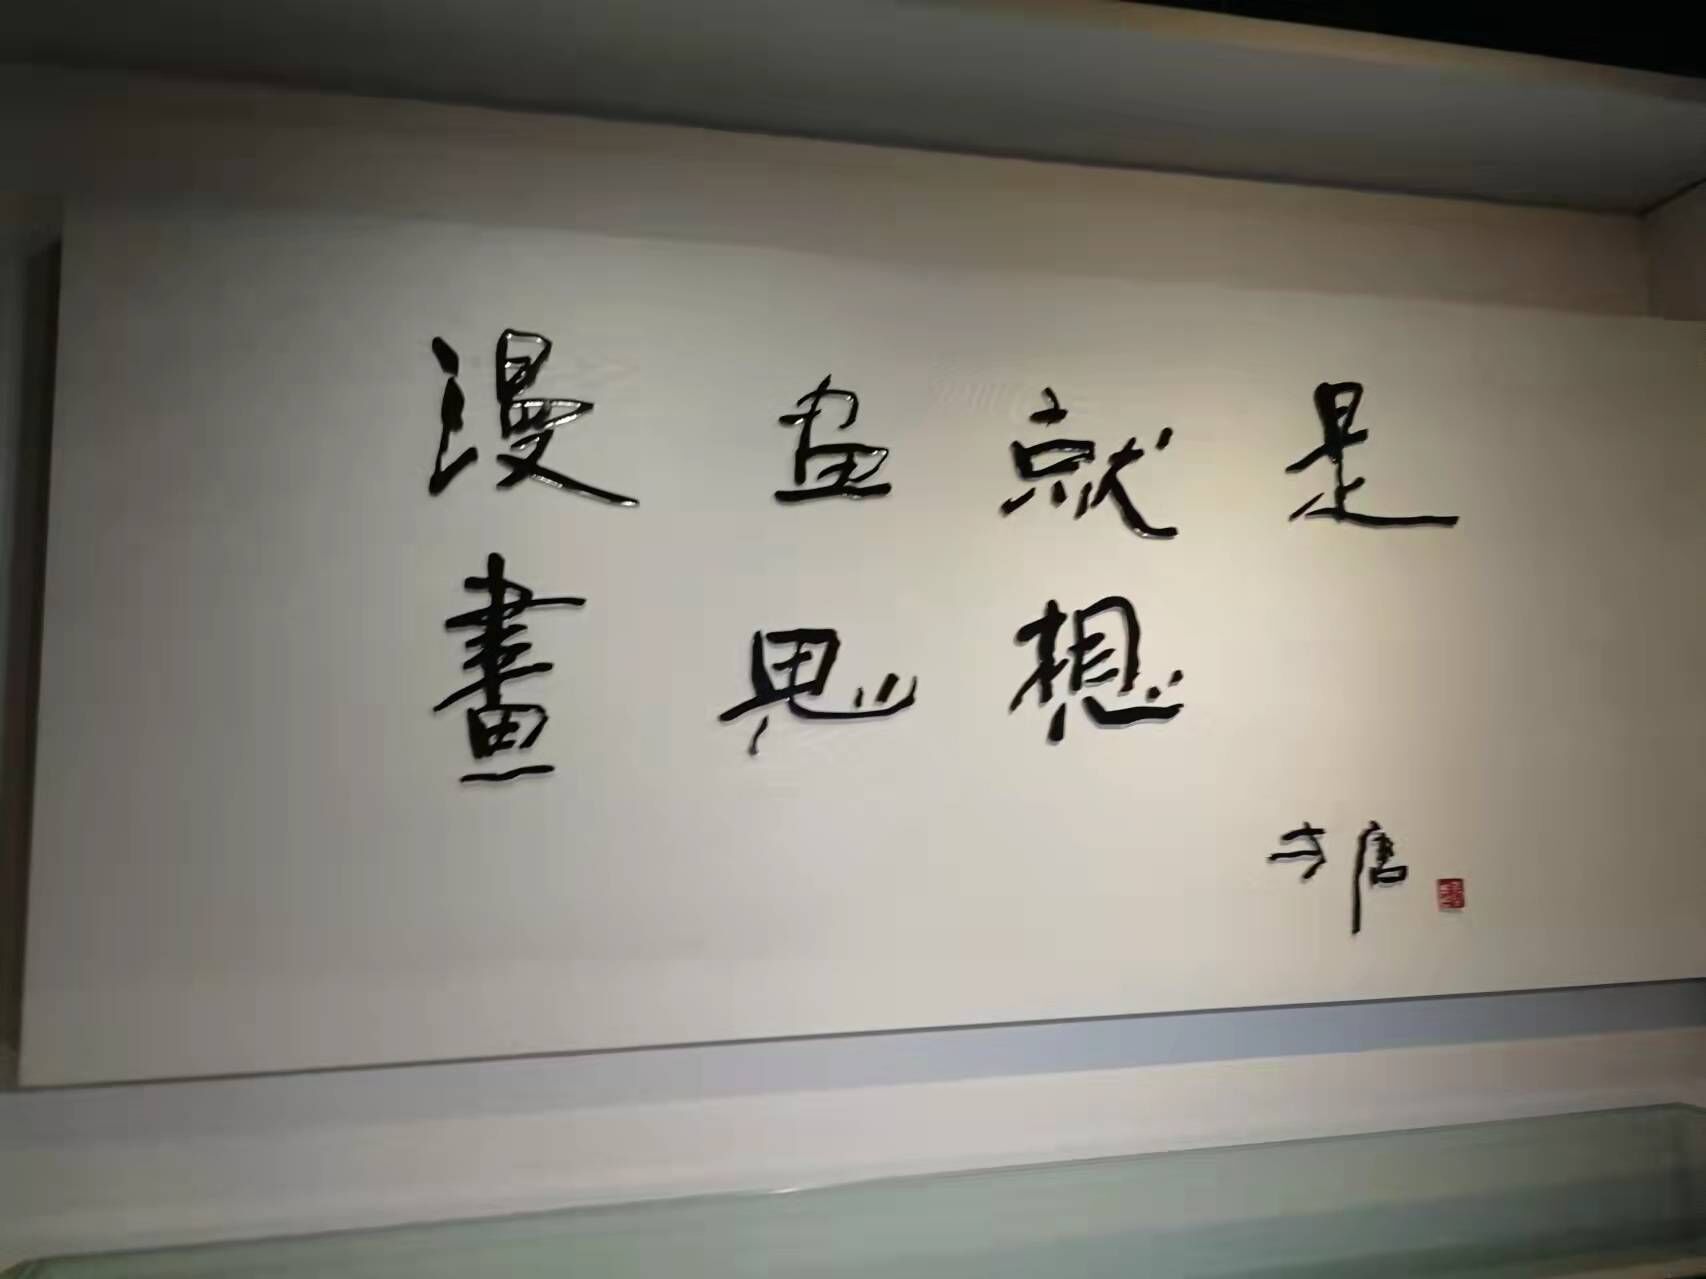 漫画就是
畫思想
方唐